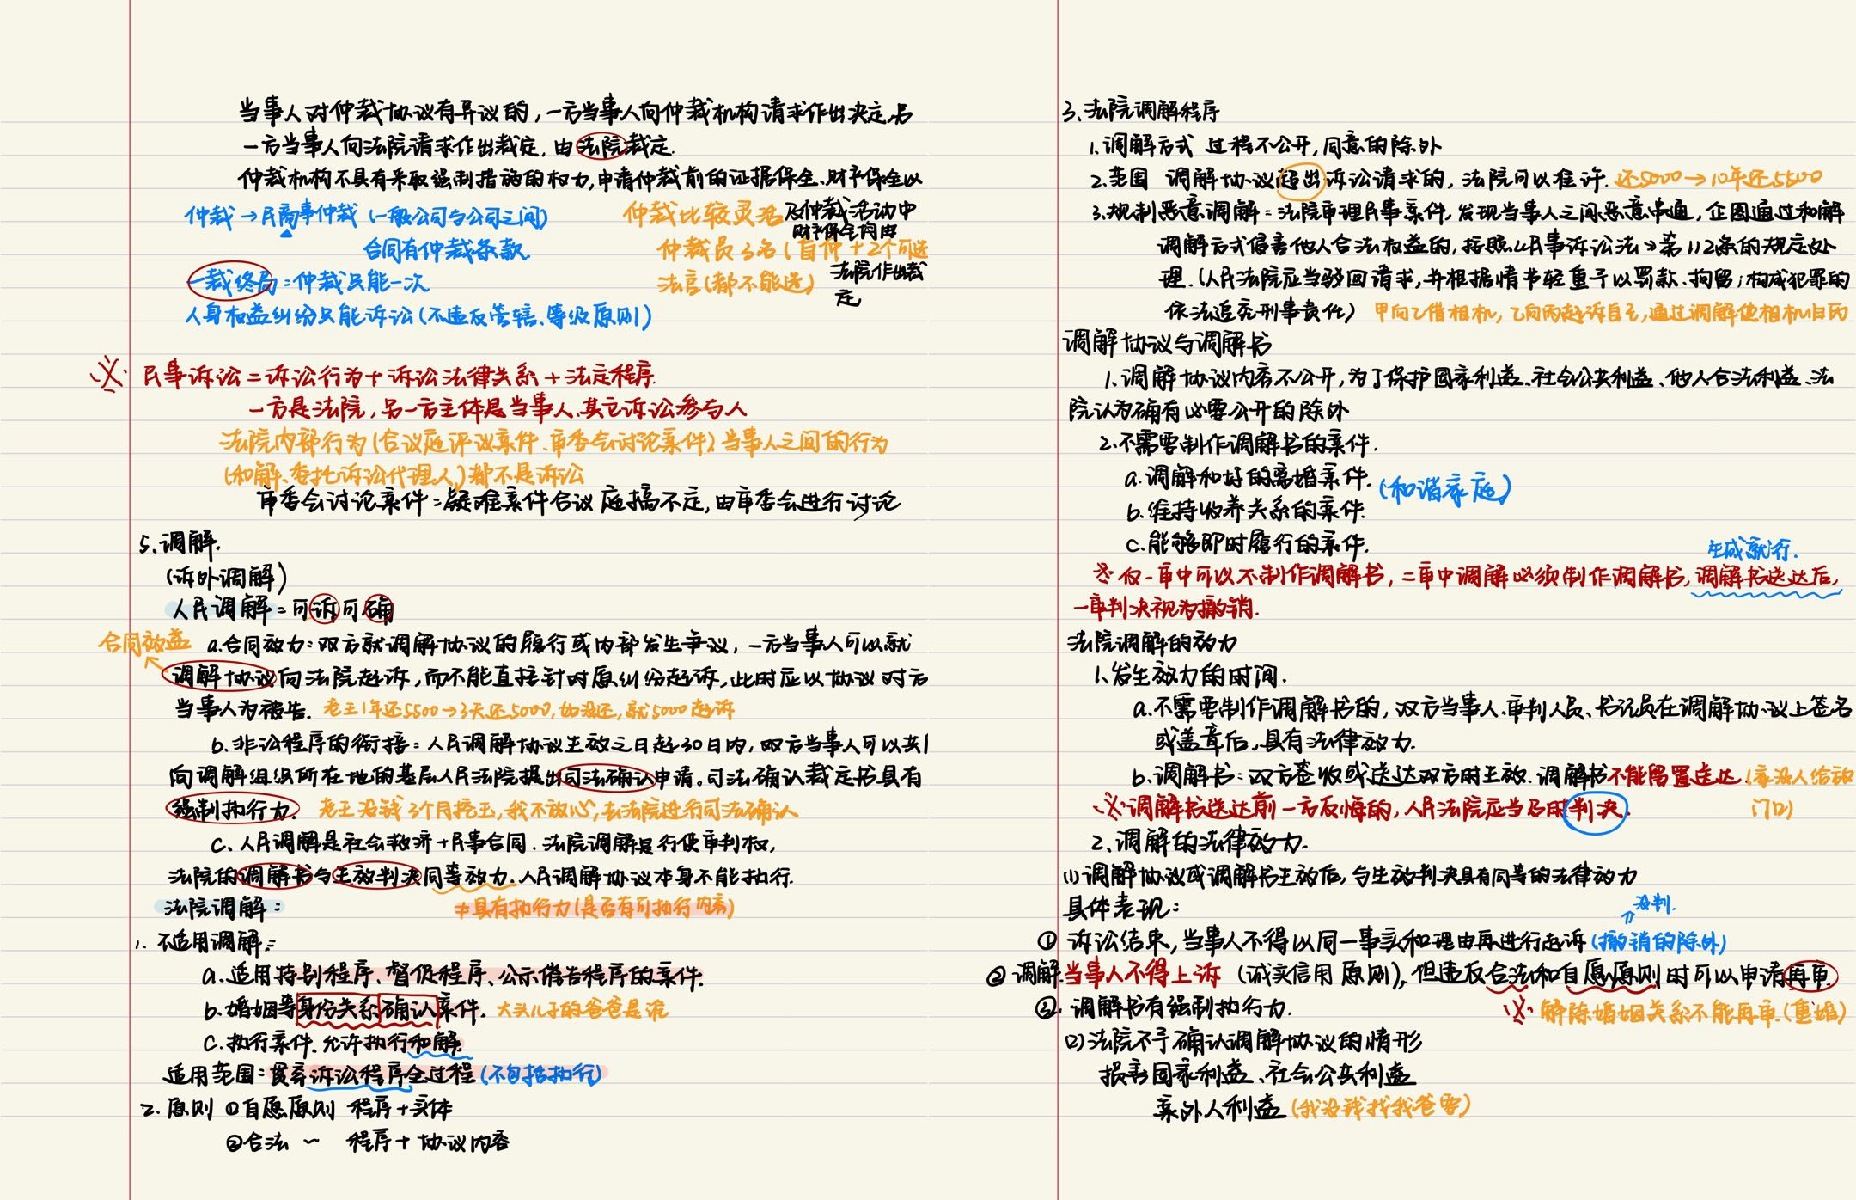 当事人对仲裁协议有异议的，一方当事人向仲裁机构请求作出决定，另
一方当事人向法院请求作出裁定，由法院裁定.
仲裁机构不具有采取强制措施的权力，申请仲裁前的证据保全、财产保全以
及仲裁活动中
财产保全均由
法院作出裁
定
仲裁→民商事仲裁（一般公司与公司之间）
合同有仲裁条款
一裁终局：仲裁只能一次
人身权益纠纷只能诉讼（不违反管辖、等级原则）
仲裁比较灵活
仲裁员3名（首仲+2个可选
法官（都不能选）
※ 民事诉讼=诉讼行为+诉讼法律关系+法定程序.
一方是法院，另一方主体是当事人、其它诉讼参与人
法院内部行为（合议庭评议案件、审委会讨论案件）当事人之间的行为
（和解、委托诉讼代理人）都不是诉讼
审委会讨论案件：疑难案件合议庭搞不定，由审委会进行讨论
5.调解.
（诉外调解）
人民调解：可诉可确
合同效益
a.合同效力：双方就调解协议的履行或内部发生争议，一方当事人可以就
调解协议向法院起诉，而不能直接针对原纠纷起诉，此时应以协议对方
当事人为被告. 老王1年还5500→3天还5000，如没还，就5000起诉
b.非讼程序的衔接：人民调解协议生效之日起30日内，双方当事人可以共同
向调解组织所在地的基层人民法院提出司法确认申请.司法确认裁定书具有
强制执行力. 老王没钱3个月挖玉，我不放心，去法院进行司法确认
c.人民调解是社会救济+民事合同.法院调解是行使审判权，
法院的调解书与生效判决同等效力.人民调解协议本身不能执行.
≠具有执行力（是否有可执行内容）
法院调解：
1.不适用调解：
a.适用特别程序、督促程序、公示催告程序的案件.
b.婚姻等身份关系确认案件. 大头儿子的爸爸是谁
c.执行案件.允许执行和解.
适用范围：贯穿诉讼程序全过程（不包括执行）
2.原则 ①自愿原则 程序+实体
②合法～ 程序+协议内容
3.法院调解程序
1.调解方式 过程不公开，同意的除外
2.范围 调解协议超出诉讼请求的，法院可以准许. 还5000→10年还5500
3.规制恶意调解：法院审理民事案件，发现当事人之间恶意串通，企图通过和解
调解方式侵害他人合法权益的，按照《民事诉讼法》第112条的规定处
理.（人民法院应当驳回请求，并根据情节轻重予以罚款、拘留；构成犯罪的
依法追究刑事责任） 甲向乙借相机，乙向丙起诉自主，通过调解使相机归丙
调解协议与调解书
1.调解协议内容不公开，为了保护国家利益、社会公共利益、他人合法利益、法
院认为确有必要公开的除外
2.不需要制作调解书的案件.
a.调解和好的离婚案件.
b.维持收养关系的案件.
（和谐家庭）
c.能够即时履行的案件.
生成就行.
※仅一审中可以不制作调解书，二审中调解必须制作调解书，调解书送达后，
一审判决视为撤销.
法院调解的效力
1.发生效力的时间.
a.不需要制作调解书的，双方当事人、审判人员、书记员在调解协议上签名
或盖章后，具有法律效力.
b.调解书：双方签收或送达双方时生效.调解书不能留置送达.（看没人给放
门口）
※调解书送达前一方反悔的，人民法院应当及时判决.
2.调解的法律效力.
(1)调解协议或调解书生效后，与生效判决具有同等的法律效力
具体表现：
没判.
① 诉讼结束，当事人不得以同一事实和理由再进行起诉（撤销的除外）
②调解当事人不得上诉（诚实信用原则），但违反合法和自愿原则时可以申请再审
③.调解书有强制执行力.
※ 解除婚姻关系不能再审.（重婚）
(2)法院不予确认调解协议的情形
损害国家利益、社会公共利益
案外人利益（我没钱找我爸要）